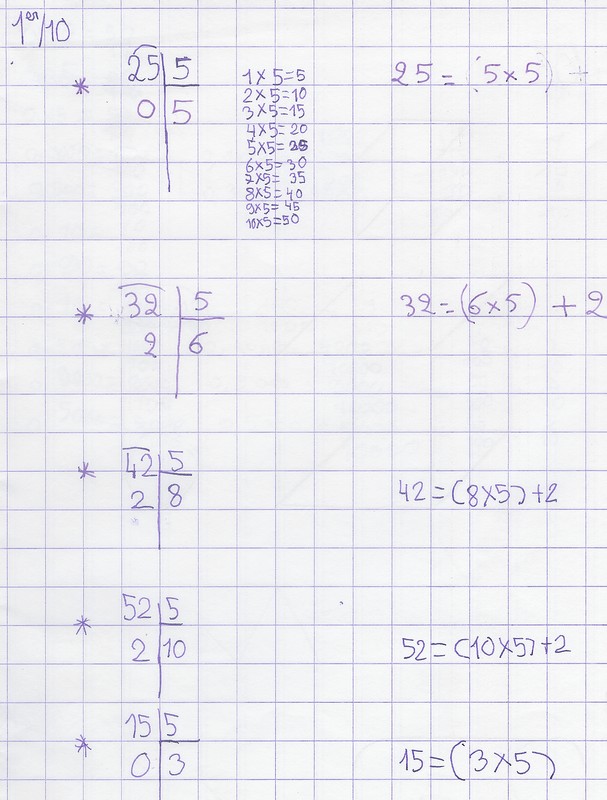 1er/10
* 25 | 5
0 | 5
1 x 5 = 5
2 x 5 = 10
3 x 5 = 15
4 x 5 = 20
5 x 5 = 25
6 x 5 = 30
7 x 5 = 35
8 x 5 = 40
9 x 5 = 45
10 x 5 = 50
25 = (5 x 5) +
* 32 | 5
2 | 6
32 = (6 x 5) + 2
* 42 | 5
2 | 8
42 = (8 x 5) + 2
* 52 | 5
2 | 10
52 = (10 x 5) + 2
* 15 | 5
0 | 3
15 = (3 x 5)